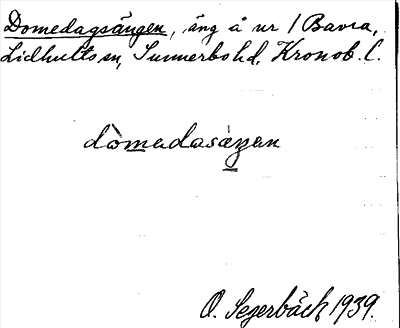 Domedagsängen, äng å nr 1 Bavra,
Lidhults sn, Sunnerbo hd, Kronob. l.
dòmadasäŋan
O. Segerbäck 1939.